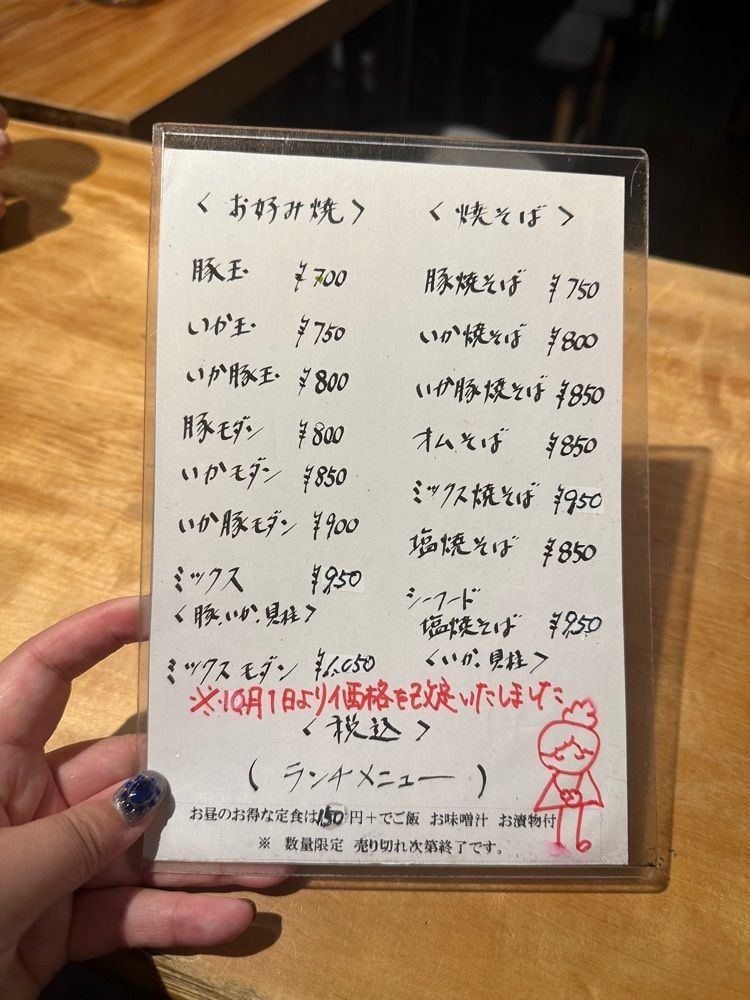 〈お好み焼〉
豚玉 ¥700
いか玉 ¥750
いか豚玉 ¥800
豚モダン ¥800
いかモダン ¥850
いか豚モダン ¥900
ミックス ¥950
〈豚、いか、貝柱〉
ミックスモダン ¥1,050
〈焼そば〉
豚焼そば ¥750
いか焼そば ¥800
いか豚焼そば ¥850
オムそば ¥850
ミックス焼そば ¥950
塩焼そば ¥850
シーフード
塩焼そば ¥950
〈いか、貝柱〉
※10月1日より価格を改定いたしました
〈税込〉
(ランチメニュー)
お昼のお得な定食は150円+でご飯 お味噌汁 お漬物付
※ 数量限定 売り切れ次第終了です。